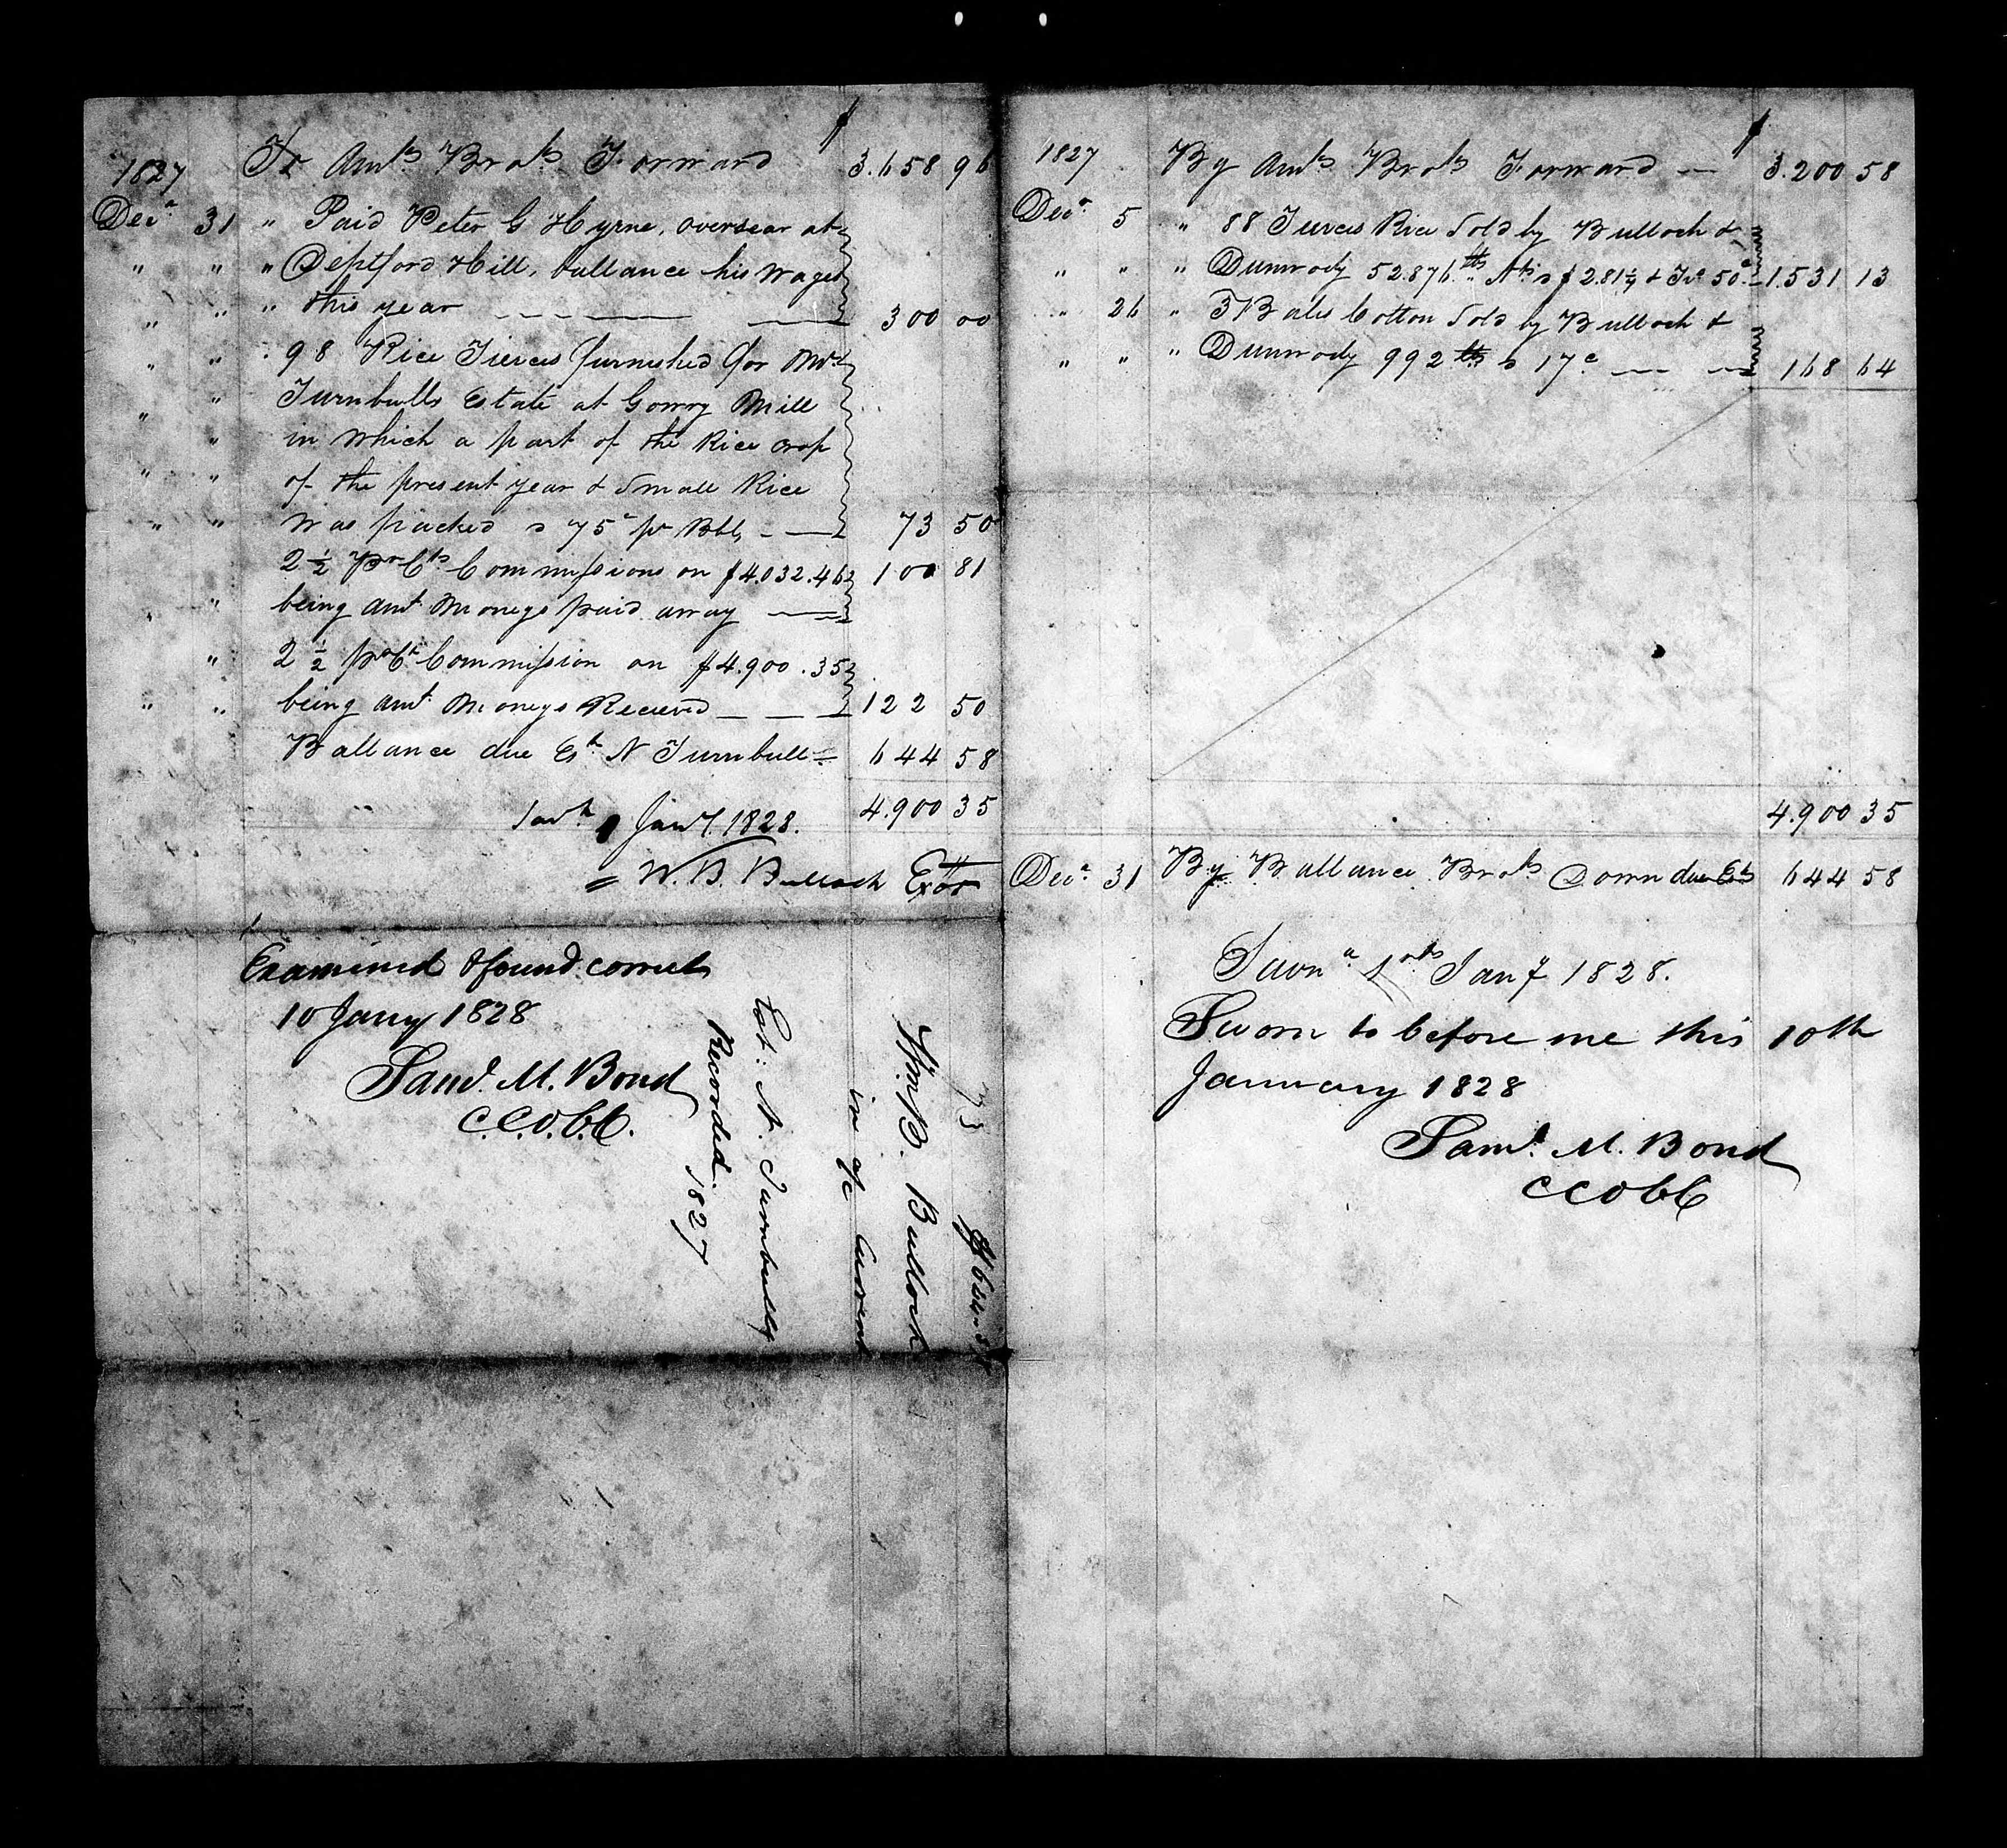 $
1827 To Amts Brots Forward 3.658 96
Decr 31 " Paid Peter G Hyrne, oversear at
" " " Deptford Hill, ballance his wages
" " " this year 300 00
" " " 98 Rice Tierces furnished for Mr
" " Turnbulls Estate at Gowry Mill
" in which a part of the Rice crop
" " of the present year & Small Rice
" " was packed @ 75c pr Bbl, 73 50
2½ Pr Cts Commissions on $4.032.46 100 81
" " being amt moneys paid away
" 2½ pr Ct Commission on $4.900.35
" " being amt moneys Received 122 50
Ballance due Est N Turnbull 644 58
4.900 35
Savh Jany. 1828.
W. B. Bulloch Exor
Examined & found correct
10 Jany 1828
Saml. M. Bond
C.C.O.C.C.
73 $644.58
Wm B. Bulloch
in a/c Current
Est: N. Turnbull
Recorded. 1827
$
1827 By Amts Brots Forward 3.200 58
Decr 5 " 88 Tierces Rice Sold by Bulloch &
" " " Dunwody 52.876 lbs Nt @ $2.81¼ & Trs 50c 1.531 13
" 26 " 3 Bales Cotton Sold by Bulloch &
" " " Dunwody 992 lbs @ 17c 168 64
4.900 35
Decr 31 By Ballance Brots Down due Est 644 58
Savna 1st Jany 1828.
Sworn to before me this 10th
January 1828
Saml. M. Bond
CCOCC